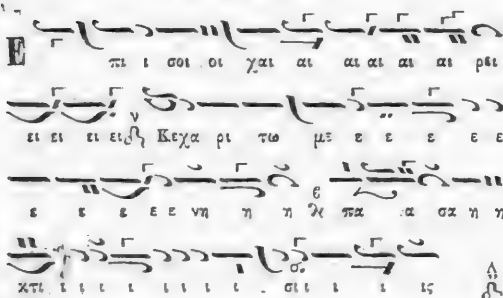 Ε πι ι σοι οι χαι αι αι αι αι αι ρει
ει ει ει ει Κεχα ρι τω με ε ε ε ε ε
ε ε ε ε ε νη η η πα α σα η η
κτι ι ι ι ι ι ι ι σι ι ι ις